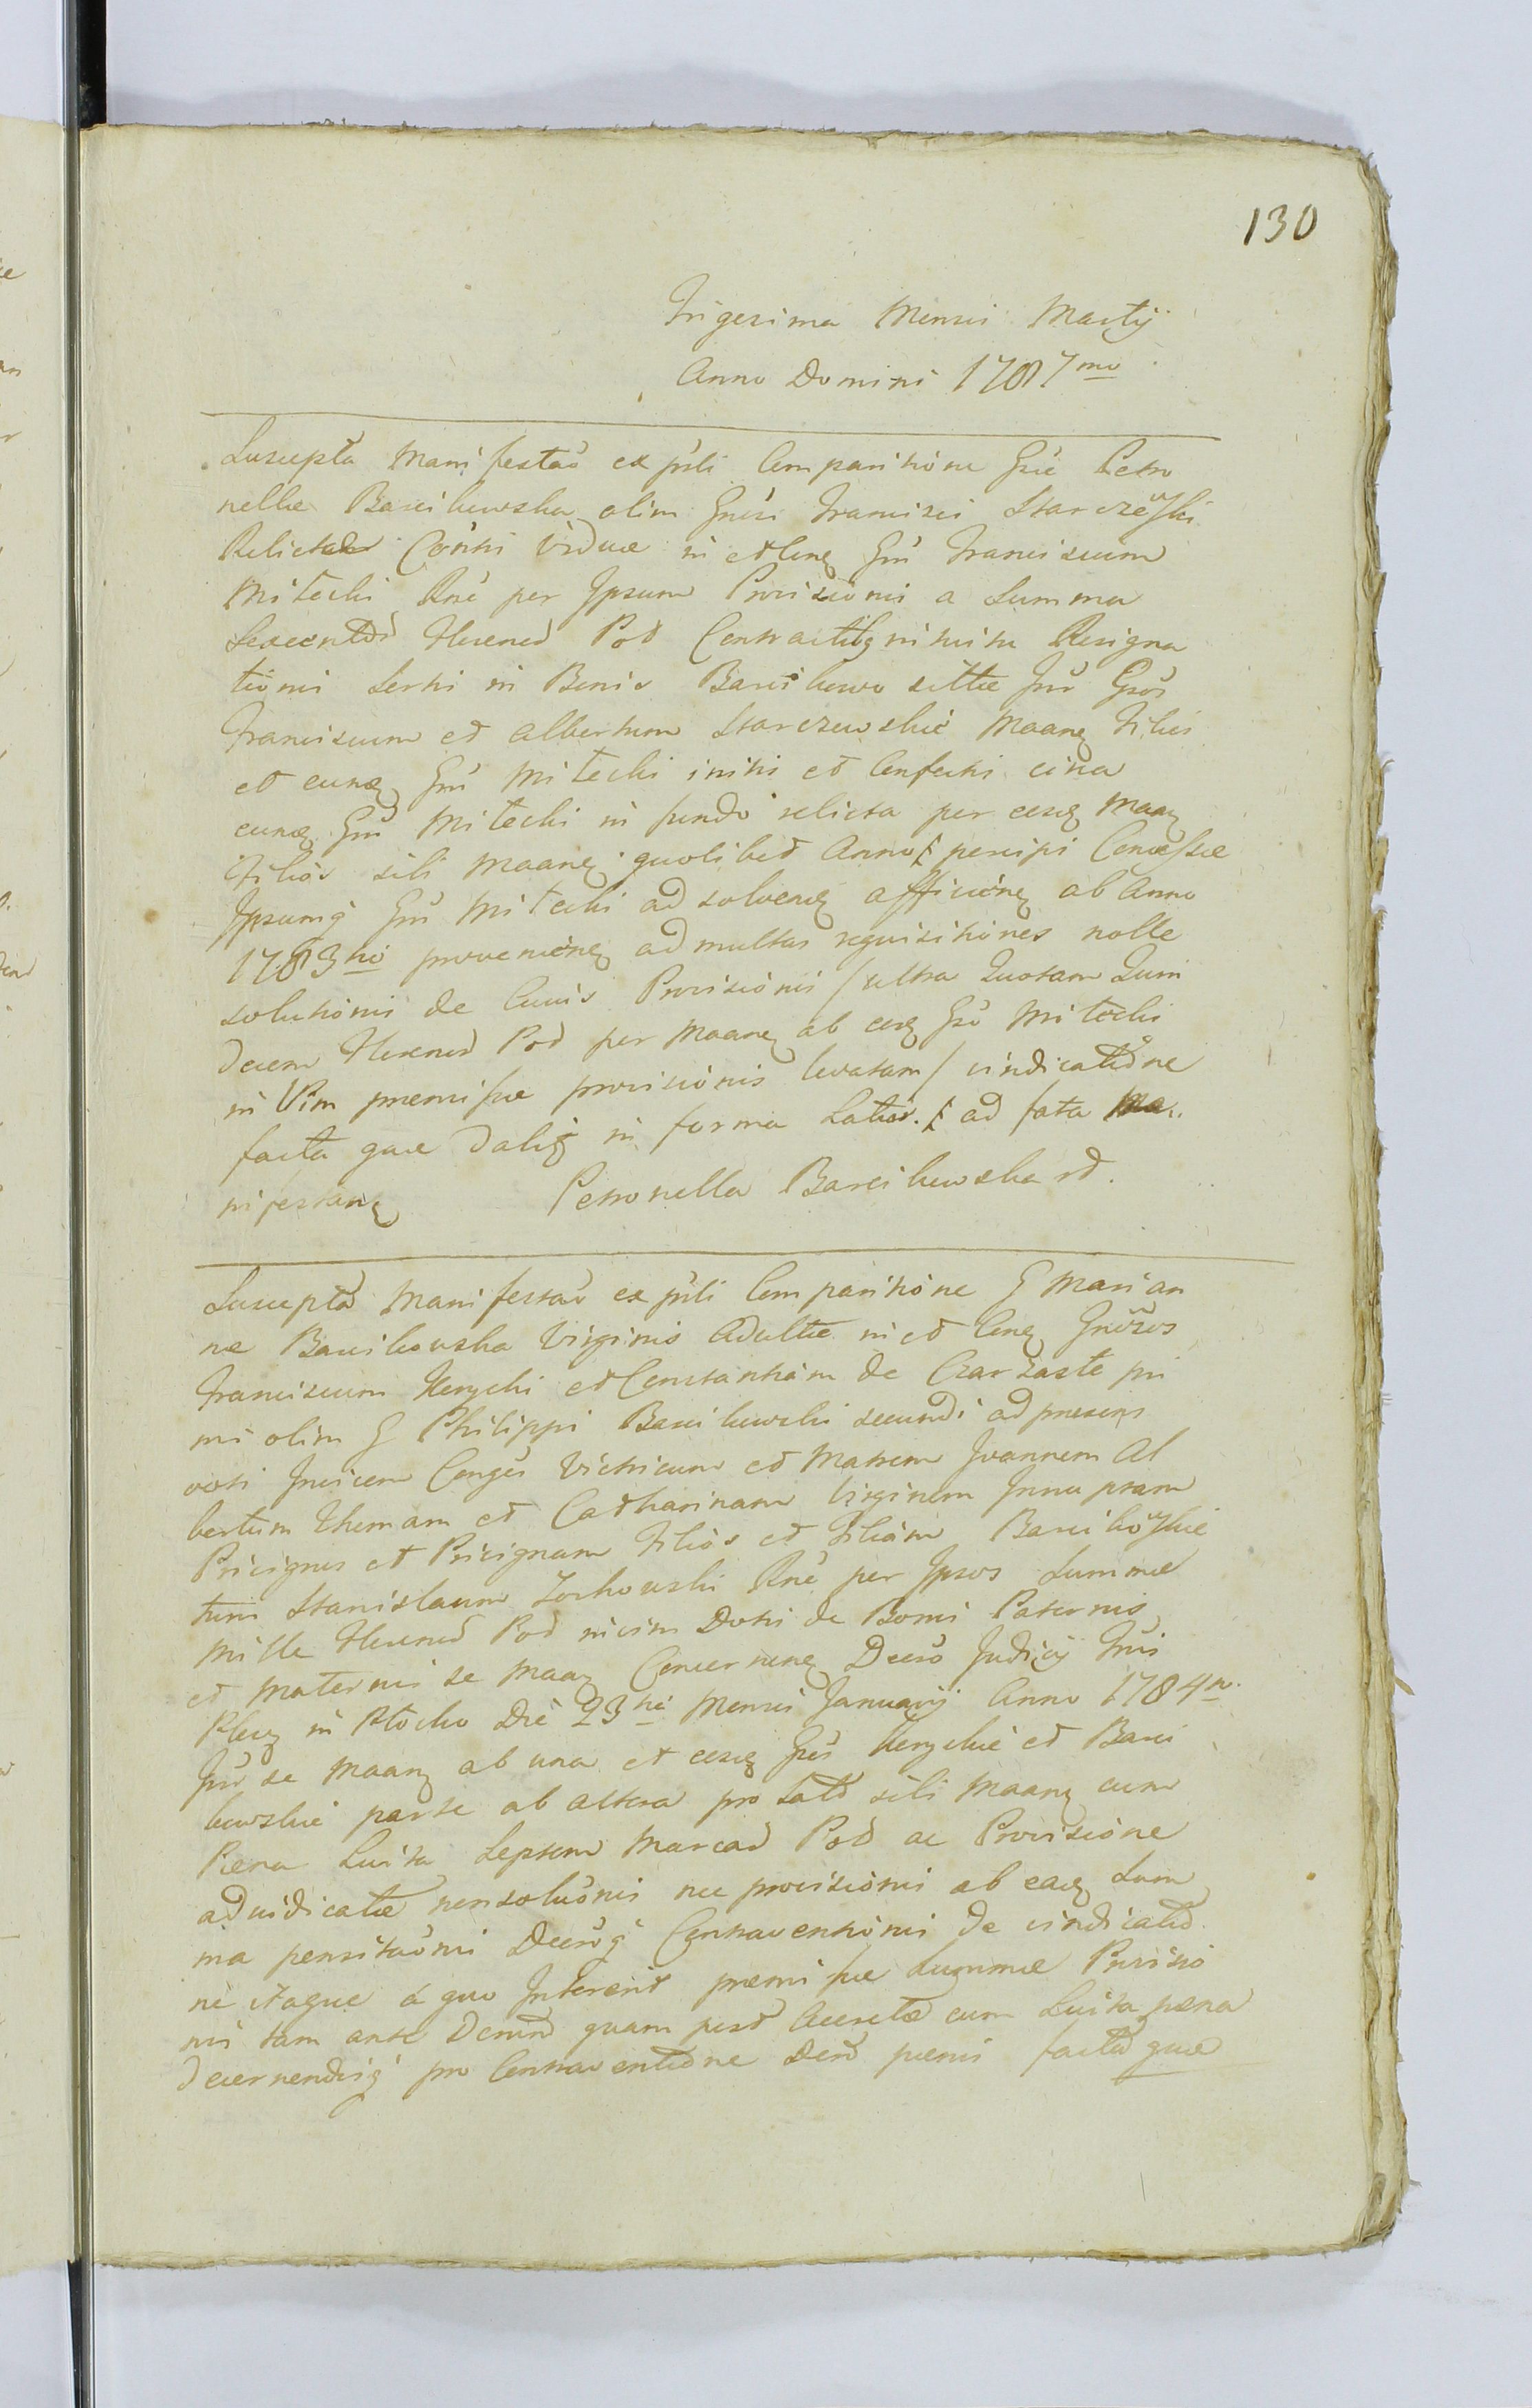 130
Trigesima Mensis Martij
Anno Domini 1787mo
Suscepta Manifestao ex psli Comparitione Gsæ Petro
nellæ Barcikowska olim Gnesi Francisci Starczewski
Relictæ Consti Viduæ in et Conq Gsu Franciscum
Mitecki Rnè per Ipsum Provisionis a Summa
Sexcent Florened Pol Contractusq initi Resigna
tionis Sorti in Bonis Barcikowo sittæ Inr Gsos
Franciscum et Albertum Starczewskie Maanq Filios
et eunq Gsu Mitecki initi et Confecti circa
eunq Gsu Mitecki in fundo relicta per eosq Maanq
Filios sibi Maanq quolibet Anno percipi Concessæ
Ipsumq Gsu Mitecki ad solvenq afficienq ab Anno
1783tio provenienq ad multas requisitiones nolle
solutionis de Cuius Provisionis / ultra Quotam Quin
decem Florened Pol per Maanq ab eoq Gso Mitecki
in Vim præmissæ provisionis levatam / vindicatione
facta quæ dabiq in forma Latior. ad fata Ma
nifestanq
Petronella Barcikowska
Suscepta Manifestao ex psli Comparitione G Marian
næ Barcikowska Virginis Adultæ in et Conq Gnosos
Franciscum Kenycki et Constantiam de Czarzaste pri
mi olim G Philippi Barcikowski secundi ad præsens
voti Invicem Conges Vitricum et Matrem Joannem Al
bertum Thomam et Catharinam Virginem Innuptam
Privignos et Privignam Filios et Filiam Barcikowskie
tum Stanislaum Zochowski Rnè per Ipsos Summæ
Mille Florened Pol in vim Dotis de Bonis Paternis
et Maternis se Maanq Concernenq Decro Judicij Tris
Plocq in Plocko Die 23tia Mensis Januarij Anno 1784to
Inr se Maanq ab una et eosq Gsos Kenyckie et Barci
kowskie parte ab altera pro lato sibi Maanq cum
Pæna Luita Septem Marcar Pol ac Provisione
adjudicatæ nonsolutionis nec provisionis ab eaq Sum
ma pensitaonis Decroq Contraventionis De vindicatio
ne itaque a quo Intererit præmissæ Summæ Provisio
nis tam ante Decret quam post Accretæ cum Luita pæna
decernendisq pro Contraventione Decro pœnis facta quæ